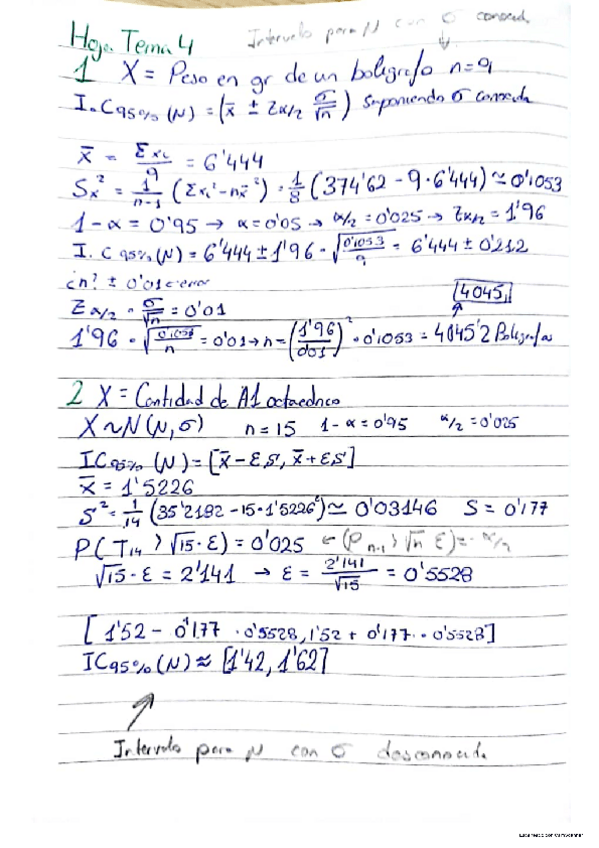 Hoja Tema 4
Intervalo para μ con σ conocida
1 X = Peso en gr de un boligrafo n=9
I.C95% (μ) = (x̄ ± Zα/2 σ/√n) suponiendo σ conocida
x̄ = Σxi/9 = 6'444
Sx² = 1/n-1 (Σxi² - nx̄²) = 1/8 (374'62 - 9·6'444) ≃ 0'1053
1-α = 0'95 → α = 0'05 → α/2 = 0'025 → Zα/2 = 1'96
I.C 95% (μ) = 6'444 ± 1'96 · √(0'1053/9) = 6'444 ± 0'212
¿n? ± 0'01 = error
Zα/2 · σ/√n = 0'01
4045
1'96 · √(0'1053/n) = 0'01 → n = (1'96/0'01)² · 0'1053 = 4045'2 Boligrafos
2 X = Cantidad de A1 octaedrico
X ~ N(μ, σ) n = 15 1-α = 0'95 α/2 = 0'025
IC95% (μ) = [x̄ - ES, x̄ + ES]
x̄ = 1'5226
S² = 1/14 (35'2182 - 15·1'5226²) ≃ 0'03146 S = 0'177
P(T14 > √15 · ε) = 0'025 ← (Pn-1 > √n ε) = α/2
√15 · ε = 2'141 → ε = 2'141/√15 = 0'5528
[1'52 - 0'177 · 0'5528, 1'52 + 0'177 · 0'5528]
IC95% (μ) ≈ [1'42, 1'62]
Intervalo para μ con σ desconocida